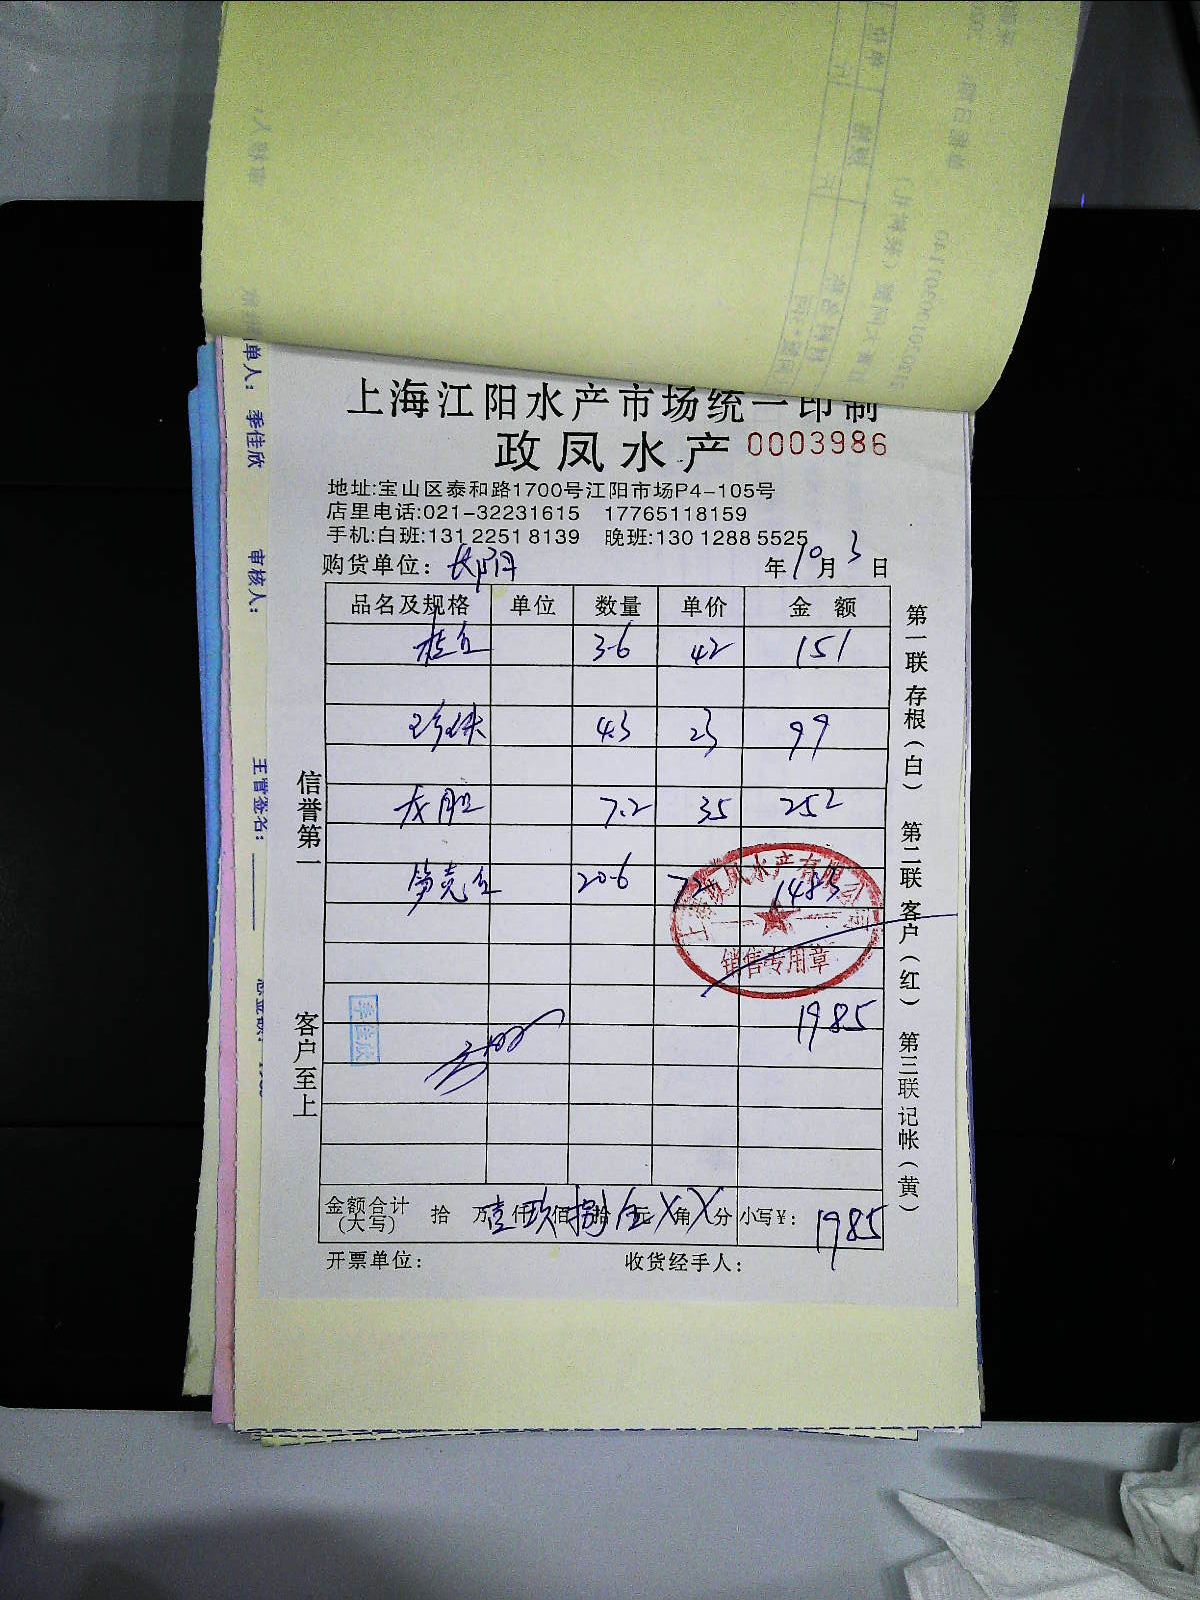 上海江阳水产市场统一印制
政凤水产 0003986
地址:宝山区泰和路1700号江阳市场P4-105号
店里电话:021-32231615 17765118159
手机:白班:131 2251 8139 晚班:130 1288 5525
购货单位: 年10月3日
品名及规格 单位 数量 单价 金额
桂鱼 3.6 42 151
珍珠 4.3 23 99
龙胆 7.2 35 252
笋壳鱼 20.6 72 1483
上海政凤水产有限公司
销售专用章
1985
季佳欣
金额合计(大写) 拾 万壹仟玖佰捌拾伍元X角X分 小写¥: 1985
开票单位: 收货经手人:
信誉第一
客户至上
第一联 存根(白)
第二联 客户(红)
第三联 记帐(黄)
单人: 季佳欣
审核人:
主管签名: